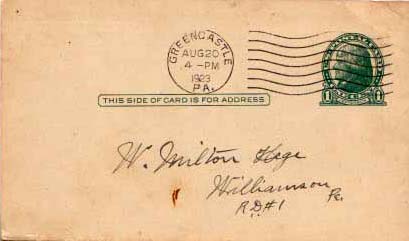 GREENCASTLE
AUG 20
4-PM
1923
PA.
THIS SIDE OF CARD IS FOR ADDRESS
1 1
W. Milton Kege
Williamson
Pa.
R.D.#1